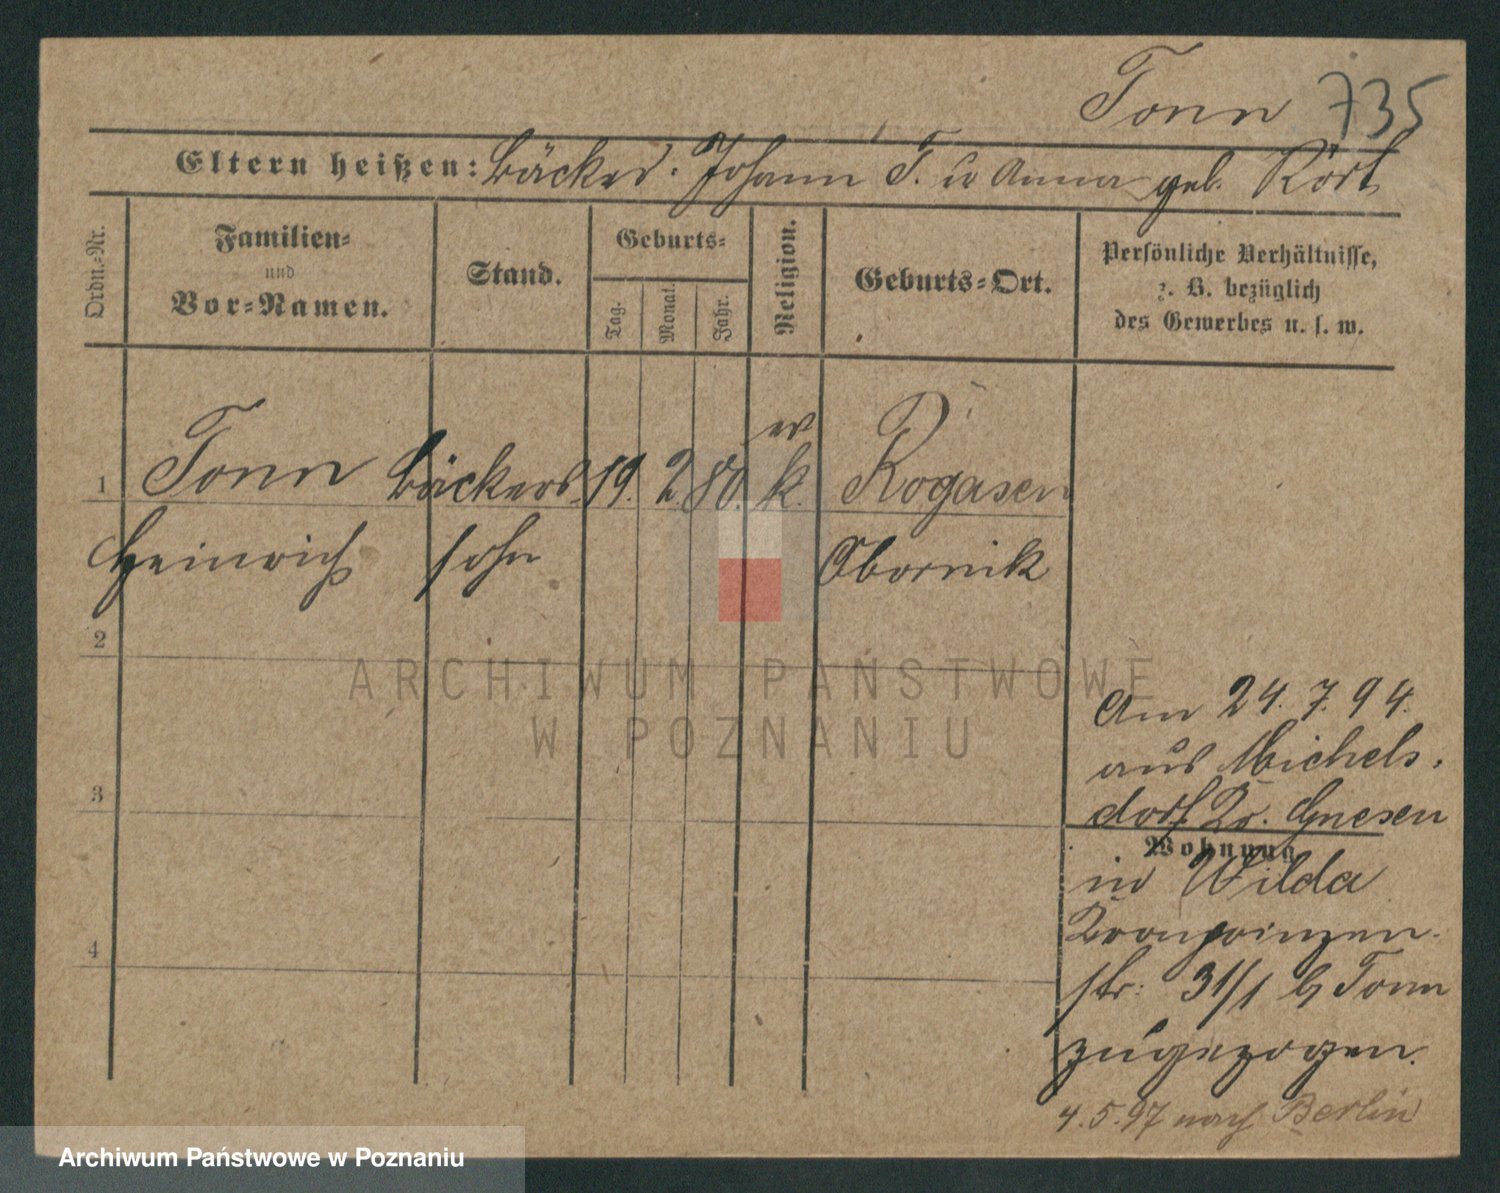 Tonn 735
Eltern heißen: Bäcker. Johann T. u Anna geb. Kört
Ordn.-Nr.
Familien-
und
Vor-Namen.
Stand.
Geburts-
Tag.
Monat.
Jahr.
Religion.
Geburts-Ort.
Persönliche Verhältnisse,
z. B. bezüglich
des Gewerbes u. s. w.
ev
1 Tonn Bäckers 19. 2. 80. k. Rogasen
Heinrich sohn Obornik
2
3
4
Am 24. 7. 94.
aus Michels.
dorf Kr. Gnesen
Wohnung
in Wilda
Kronprinzen.
str: 31/1 b Tonn
zugezogen.
4.5.97 nach Berlin
ARCHIWUM PAŃSTWOWE
W POZNANIU
Archiwum Państwowe w Poznaniu